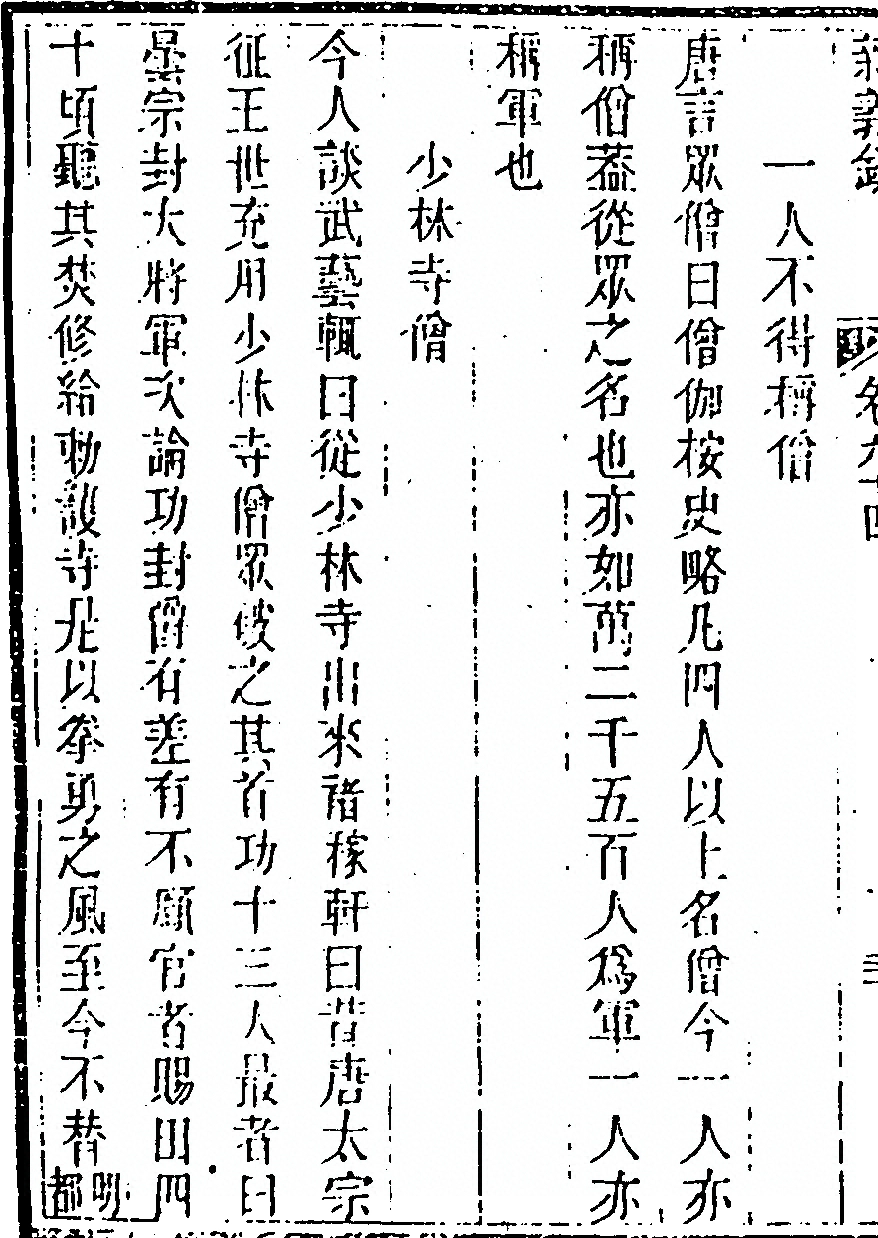 新義錄 卷九十四 三
一人不得稱僧
唐言眾僧曰僧伽按史略凡四人以上名僧今一人亦
稱僧葢從眾之名也亦如萬二千五百人爲軍一人亦
稱軍也
少林寺僧
今人談武藝輒曰從少林寺出來褚稼軒曰昔唐太宗
征王世充用少林寺僧眾破之其首功十三人最者曰
曇宗封大將軍次論功封爵有差有不願官者賜田四
十頃聽其焚修給勅護寺是以拳勇之風至今不替明都